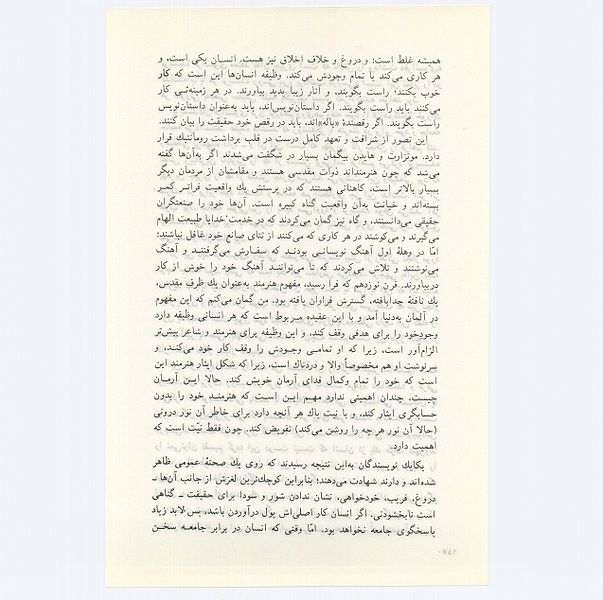 همیشه غلط است؛ و دروغ و خلاف اخلاق نیز هست. انسان یکی است، و
هر کاری می‌کند با تمام وجودش می‌کند. وظیفه انسان‌ها این است که کار
خوب بکنند؛ راست بگویند، و آثار زیبا پدید بیاورند. در هر زمینه‌ئی کار
می‌کنند باید راست بگویند. اگر داستان‌نویس‌اند، باید به‌عنوان داستان‌نویس
راست بگویند. اگر رقصندهٔ «باله»‌اند، باید در رقص خود حقیقت را بیان کنند.
این تصور از شرافت و تعهد کامل درست در قلب برداشت رومانتیك قرار
دارد. موتزارت و هایدن بیگمان بسیار در شگفت می‌شدند اگر به‌آن‌ها گفته
می‌شد که چون هنرمنداند ذوات مقدسی هستند و مقامشان از مردمان دیگر
بسیار بالاتر است، کاهنانی هستند که در پرستش یك واقعیت فراتر کمر
بسته‌اند و خیانت به‌آن واقعیت گناه کبیره است. آن‌ها خود را صنعتگران
حقیقی می‌دانستند، و گاه نیز گمان می‌کردند که در خدمت خدایا طبیعت الهام
می‌گیرند و می‌کوشند در هر کاری که می‌کنند از ثنای صانع خود غافل نباشند؛
امّا در وهلهٔ اول آهنگ نویسانی بودند که سفارش می‌گرفتند و آهنگ
می‌نوشتند و تلاش می‌کردند که تا می‌توانند آهنگ خود را خوش از کار
دربیاورند. قرن نوزدهم که فرا رسید، مفهوم هنرمند به‌عنوان یك ظرف مقدس،
یك تافتهٔ جدابافته، گسترش فراوان یافته بود. من گمان می‌کنم که این مفهوم
در آلمان به‌دنیا آمد و با این عقیده مربوط است که هر انسانی وظیفه دارد
وجودخود را برای هدفی وقف کند، و این وظیفه برای هنرمند و شاعر بیش‌تر
الزام‌آور است، زیرا که او تمامی وجودش را وقف کار خود می‌کند، و
سرنوشت او هم مخصوصاً والا و دردناك است، زیرا که شکل ایثار هنرمند این
است که خود را تمام وکمال فدای آرمان خویش کند. حالا این آرمان
چیست، چندان اهمیتی ندارد مهم این است که هنرمند خود را بدون
حسابگری ایثار کند، و با نیت پاك هر آنچه دارد برای خاطر آن نور درونی
(حالا آن نور هر چه را روشن می‌کند) تفویض کند. چون فقط نیّت است که
اهمیت دارد.
یکایك نویسندگان به‌این نتیجه رسیدند که روی یك صحنهٔ عمومی ظاهر
شده‌اند و دارند شهادت می‌دهند؛ بنابراین کوچك‌ترین لغزش از جانب آن‌ها ـ
دروغ، فریب، خودخواهی، نشان ندادن شور و سودا برای حقیقت ـ گناهی
است نابخشودنی. اگر انسان کار اصلی‌اش پول درآوردن باشد، پس لابد زیاد
پاسخگوی جامعه نخواهد بود. امّا وقتی که انسان در برابر جامعه سخن